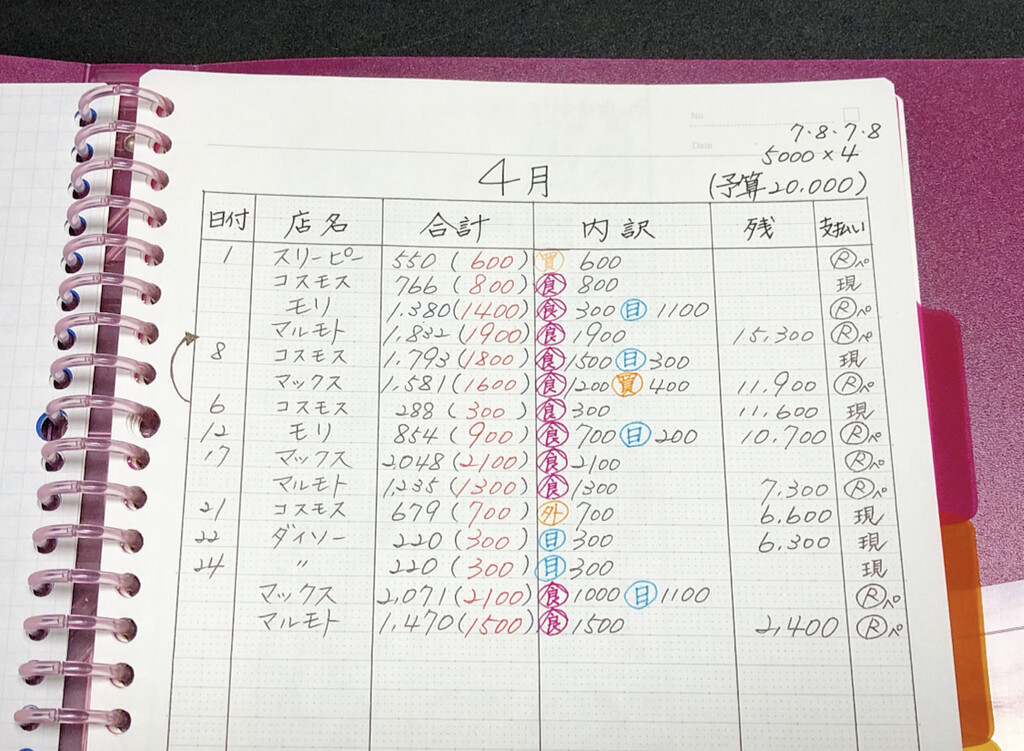 No.
Date
7・8・7・8
5000×4
4月 (予算20.000)
日付 店名 合計 内訳 残 支払い
1 スリーピー 550 (600) 買 600 Rペ
コスモス 766 (800) 食 800 現
モリ 1.380 (1400) 食 300 日 1100 Rペ
マルモト 1.832 (1900) 食 1900 15,300 Rペ
8 コスモス 1.793 (1800) 食 1500 日 300 現
マックス 1,581 (1600) 食 1200 買 400 11,900 Rペ
6 コスモス 288 (300) 食 300 11,600 現
12 モリ 854 (900) 食 700 日 200 10,700 Rペ
17 マックス 2048 (2100) 食 2100 Rペ
マルモト 1,235 (1300) 食 1300 7,300 Rペ
21 コスモス 679 (700) 外 700 6,600 現
22 ダイソー 220 (300) 日 300 6,300 現
24 〃 220 (300) 日 300 現
マックス 2,071 (2100) 食 1000 日 1100 Rペ
マルモト 1,470 (1500) 食 1500 2,400 Rペ